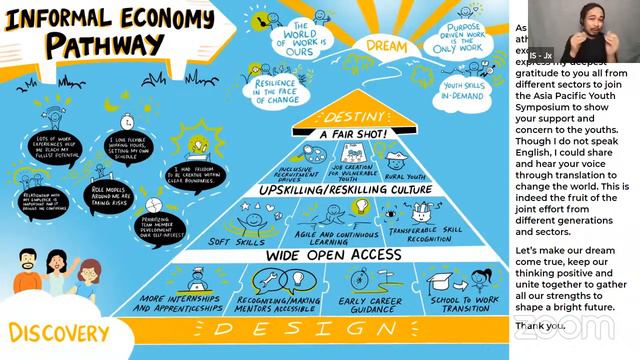 INFORMAL ECONOMY
PATHWAY
THE
WORLD
OF WORK IS
OURS
DREAM
PURPOSE
DRIVEN WORK
IS THE
ONLY WORK
RESILIENCE
IN THE FACE
OF CHANGE
YOUTH SKILLS
IN-DEMAND
LOTS OF WORK
EXPERIENCES HELP
ME REACH MY
FULLEST POTENTIAL
I LOVE FLEXIBLE
WORKING HOURS,
SETTING MY OWN
SCHEDULE
I HAD FREEDOM
TO BE CREATIVE WITHIN
CLEAR BOUNDARIES.
RELATIONSHIP WITH
MY EMPLOYER IS
IMPORTANT AND IT
BRINGS ME CONFIDENCE
ROLE MODELS
AROUND ME ARE
TAKING RISKS
PRIORITIZING
TEAM MEMBER
DEVELOPMENT
OVER SELF-INTEREST
DISCOVERY
DESTINY
A FAIR SHOT!
INCLUSIVE
RECRUITMENT
JOB CREATION FOR
VULNERABLE
YOUTH
RURAL YOUTH
UPSKILLING/RESKILLING CULTURE
SOFT SKILLS
AGILE AND CONTINUOUS
LEARNING
TRANSFERABLE SKILL
RECOGNITION
WIDE OPEN ACCESS
MORE INTERNSHIPS
AND APPRENTICESHIPS
RECOGNIZING/MAKING
MENTORS ACCESSIBLE
EARLY CAREER
GUIDANCE
SCHOOL TO WORK
TRANSITION
DESIGN
IS - Jx
As
express my deepest
gratitude to you all from
different sectors to join
the Asia Pacific Youth
Symposium to show
your support and
concern to the youths.
Though I do not speak
English, I could share
and hear your voice
through translation to
change the world. This is
indeed the fruit of the
joint effort from
different generations
and sectors.
Let's make our dream
come true, keep our
thinking positive and
unite together to gather
all our strengths to
shape a bright future.
Thank you.
zoom